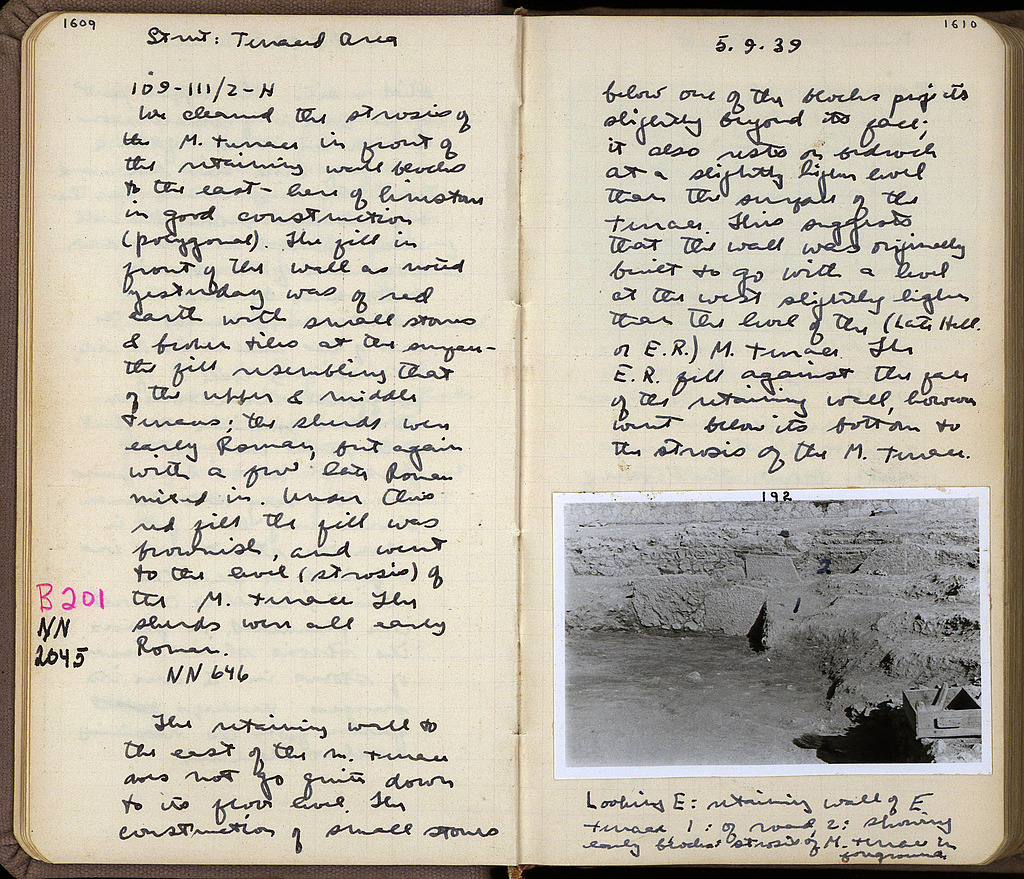 1609
Strut: Terraced Area
109-111/2-H
We cleared the strosis of
the M. Terrace in front of
the retaining wall blocks
to the east - here of limestone
in good construction
(polygonal). The fill in
front of the wall as noted
yesterday was of red
earth with small stones
& broken tiles at the surface -
the fill resembling that
of the upper & middle
terraces; the sherds were
early Roman, but again
with a few late Roman
mixed in. Under this
red fill the fill was
brownish, and went
to the level (strosis) of
the M. terrace The
sherds were all early
Roman.
NN 646
B201
NN
2045
The retaining wall to
the east of the m. terrace
does not go quite down
to its floor level. The
construction of small stones
1610
5.9.39
below one of the blocks projects
slightly beyond its face;
it also rests on bedrock
at a slightly higher level
than the surface of the
terrace. This suggests
that the wall was originally
built to go with a level
at the west slightly higher
than the level of the (Late Hell.
or E.R.) M. terrace. The
E.R. fill against the face
of the retaining wall, however
went below its bottom to
the strosis of the M. terrace.
192
2
1
Looking E: retaining wall of E
terrace 1: of road, 2: showing
early blocks: strosis of M. terrace in
foreground.